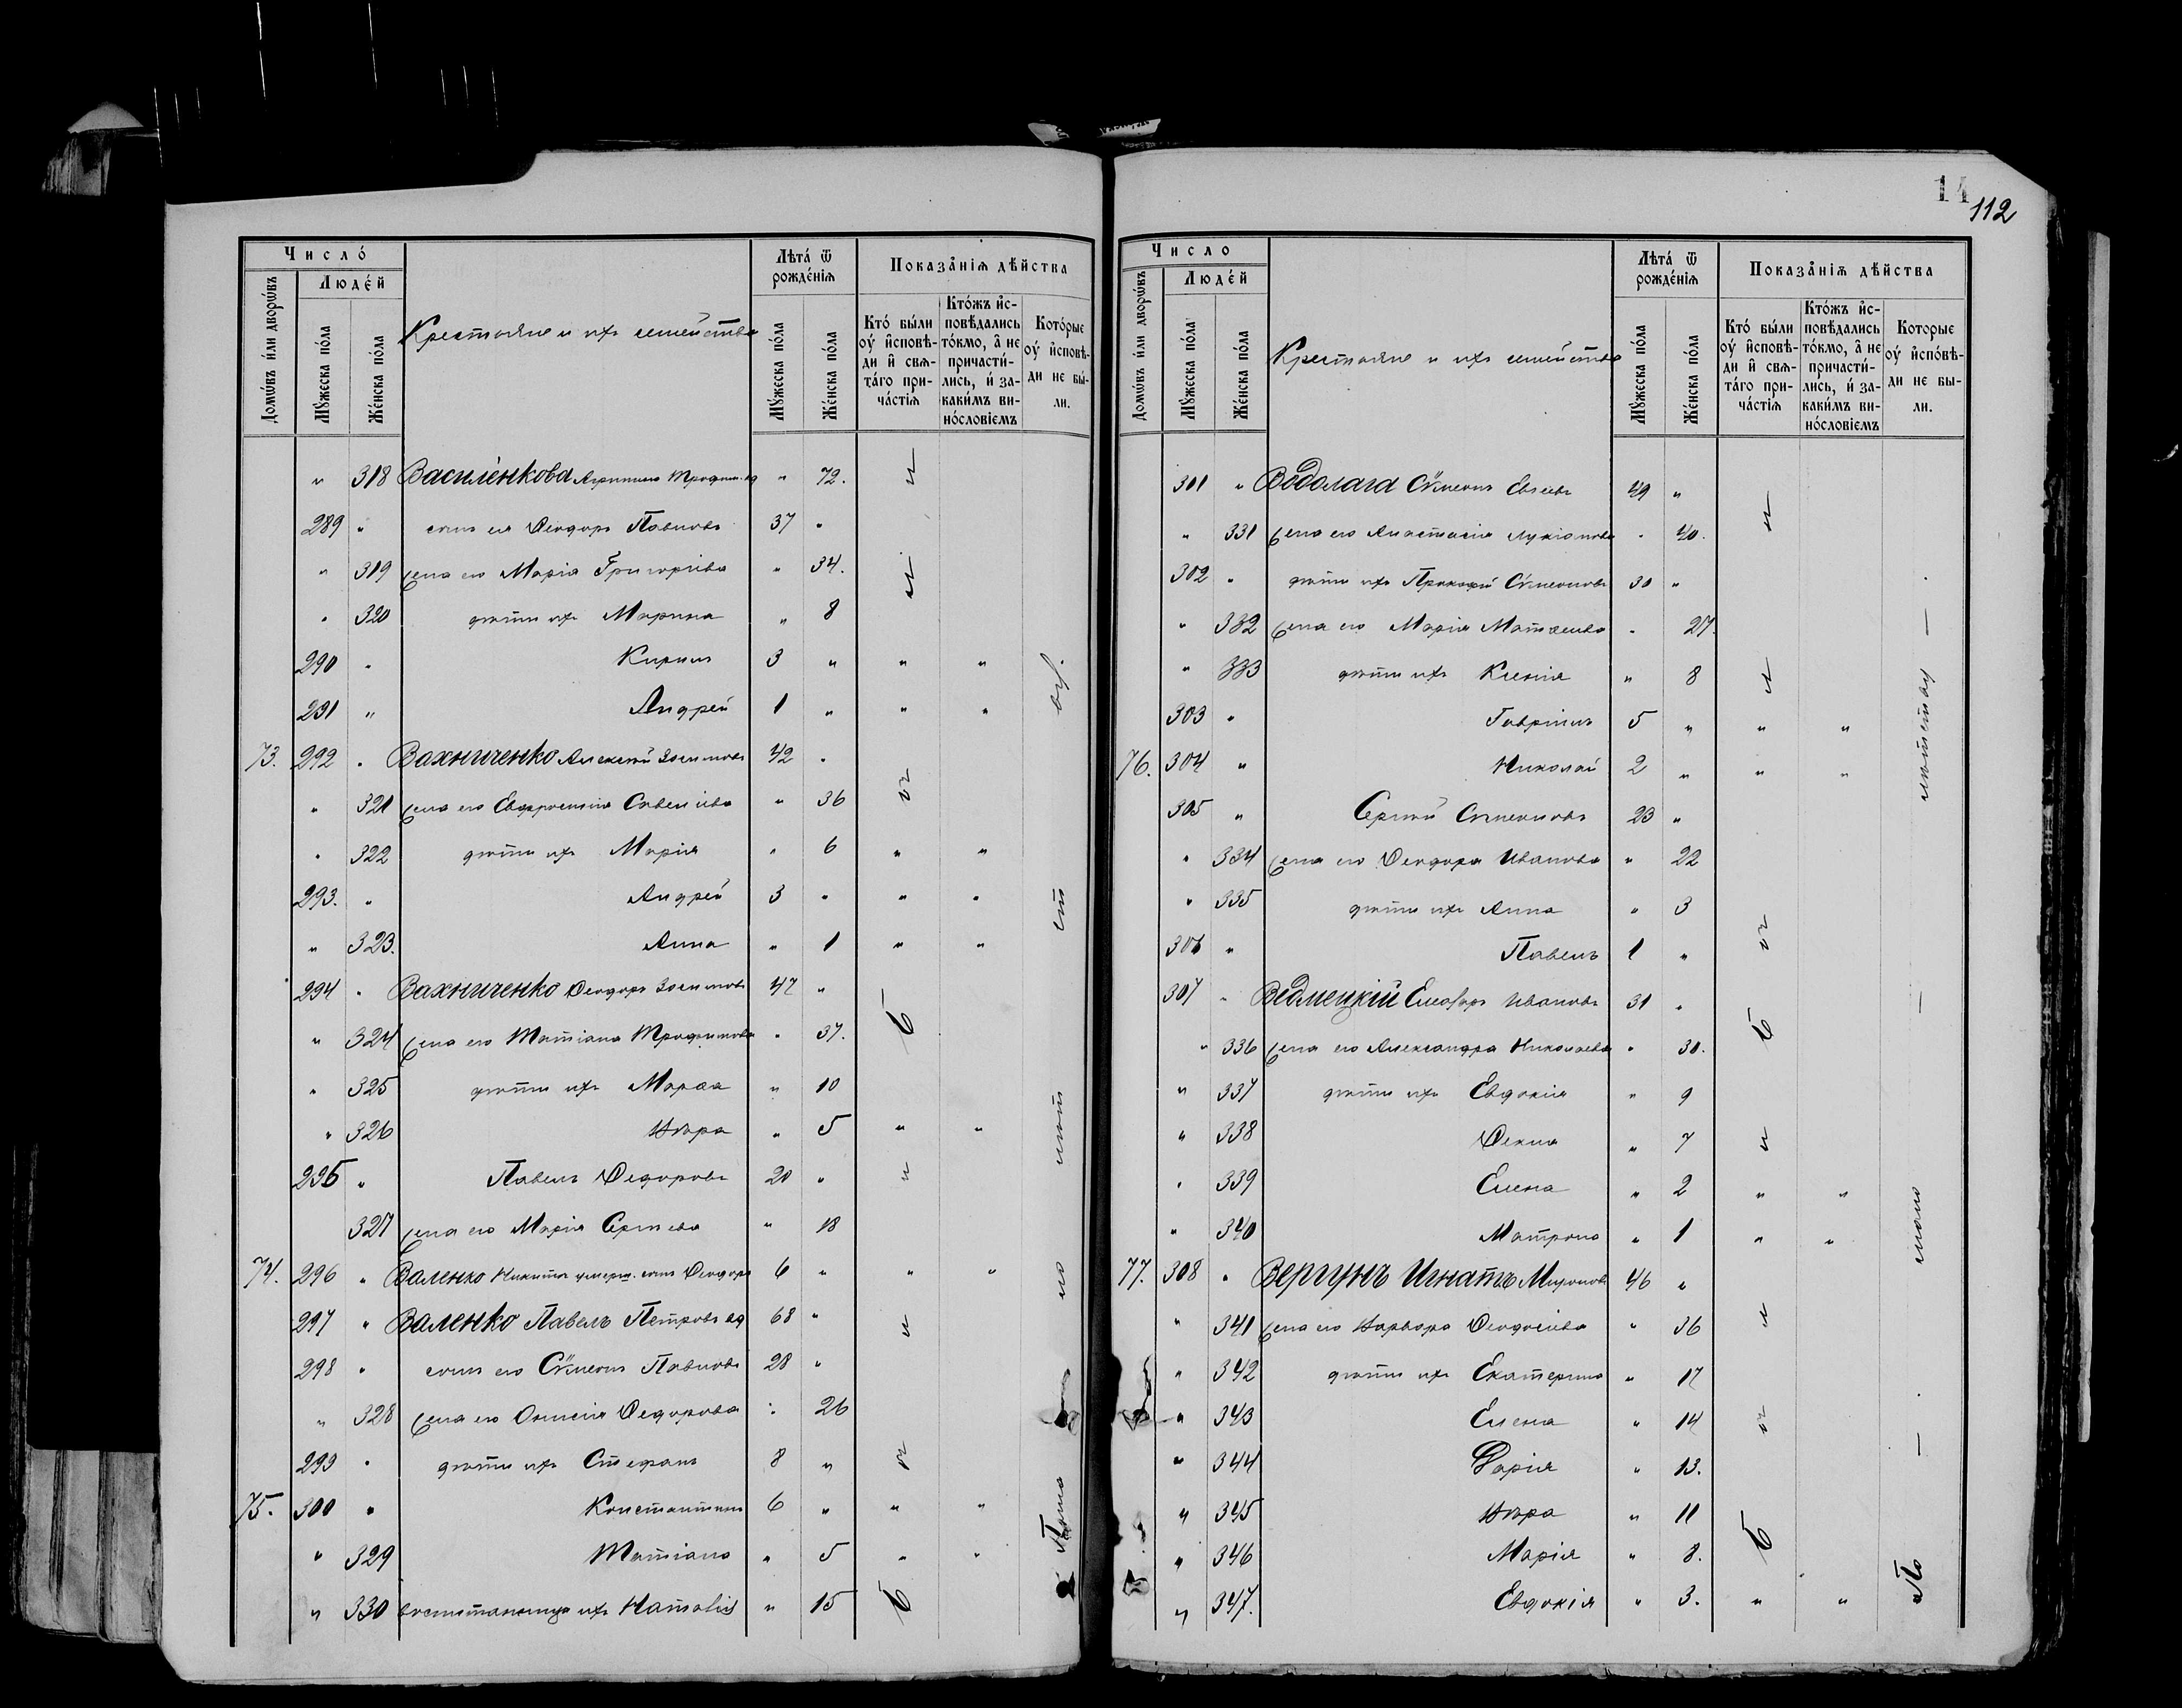 Число́
Домѡ́въ и́ли дворѡ́въ
Люде́й
Мꙋ́жеска по́ла
Же́нска по́ла
Крестьяне и ихъ семейства
Лѣта́ ѿ рожде́нїѧ
Мꙋ́жеска по́ла
Же́нска по́ла
Показа̑нїѧ дѣ́йства
Кто́ бы́ли оу҆ и҆сповѣ-
ди и҆ свѧ-
та́го при-
ча́стїѧ
Кто́жъ и҆с-
повѣ́дались
то́кмо, а҆ не
причасти́-
лись, и҆ за-
каки́мъ ви-
но́словїемъ
Кото́рые
оу҆ и҆сповѣ́-
ди не бы́-
ли.
" 318 Василенкова Агриппина Трофим. вд " 72.
289 " сынъ ея Ѳеодоръ Павловъ 37 "
" 319 жена его Марія Григоріева " 34.
" 320 дѣти ихъ Марина " 8
290 " Кирилъ 3 " " "
291 " Андрей 1 " " "
73. 292 " Вахниченко Алексѣй Зосимовъ 42 "
" 321 жена его Евфросинія Савеліева " 36
" 322 дѣти ихъ Марія " 6 " "
293. " Андрей 3 " " "
" 323. Анна " 1 " "
294 " Вахниченко Ѳеодоръ Зосимовъ 47 "
" 324 жена его Татіана Трофимова " 37.
" 325 дѣти ихъ Марѳа " 10
" 326 Вѣра " 5 " "
295 " Павелъ Ѳедоровъ 20 "
327 жена его Марія Сергіева " 18
74. 296 " Валенко Никиты умерш. сынъ Ѳеодоръ 6 " " "
297 " Валенко Павелъ Петровъ вд 68 "
298 " сынъ его Сѷмеонъ Павловъ 28 "
" 328 жена его Онисія Ѳедорова " 26
299 " дѣти ихъ Стефанъ 8 "
75. 300 " Константинъ 6 " " "
" 329 Татіана " 5 " "
" 330 воспитаница ихъ Наталія " 15
14
112
Число
Домѡ́въ и́ли дворѡ́въ
Люде́й
Мꙋ́жеска по́ла
Же́нска по́ла
Крестьяне и ихъ семейства
Лѣта́ ѿ рожде́нїѧ
Мꙋ́жеска по́ла
Же́нска по́ла
Показа̑нїѧ дѣ́йства
Кто́ бы́ли оу҆ и҆сповѣ-
ди и҆ свѧ-
та́го при-
ча́стїѧ
Кто́жъ и҆с-
повѣ́дались
то́кмо, а҆ не
причасти́-
лись, и҆ за-
каки́мъ ви-
но́словїемъ
Которые
оу҆ и҆спо́вѣ-
ди не бы-
ли.
301 " Водолага Сѷмеонъ Евсіевъ 49 "
" 331 жена его Анастасія Лукіанова " 40.
302 " дѣти ихъ Прокофій Сѷмеоновъ 30 "
" 332 жена его Марія Матѳеева " 27.
" 333 дѣти ихъ Ксенія " 8
303 " Гавріилъ 5 " " "
76. 304 " Николай 2 " " "
305 " Сергій Сѷмеоновъ 23 "
" 334 жена его Ѳеодора Иванова " 22
" 335 дѣти ихъ Анна " 3
306 " Павелъ 1 "
307 " Ведмецкій Елеазаръ Ивановъ 31 "
" 336 жена его Александра Николаева " 30.
" 337 дѣти ихъ Евдокія " 9
" 338 Ѳекла " 7
" 339 Елена " 2 " "
" 340 Матрона " 1 " "
77. 308 " Вергунъ Игнатъ Мироновъ 46 "
" 341 жена его Варвара Ѳеодосіева " 36
" 342 дѣти ихъ Екатерина " 17
" 343 Елена " 14
" 344 Дарія " 13.
" 345 Вѣра " 11
" 346 Марія " 8.
" 347. Евдокія " 3. " "
По мало лѣтству